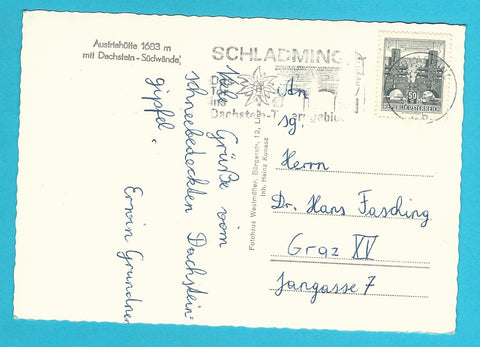 Austriahütte 1683 m
mit Dachstein-Südwände
Viele Grüße vom
schneebedeckten Dachstein-
gipfel.
Erwin Grundner
Fotohaus Westmüller, Bürgerstr. 12,
Inh. Heinz Kunasz
SCHLADMING
Das
Tor
ins
Dachstein-Tauerngebiet
50
REPUBLIK ÖSTERREICH
An
sg.
Herrn
Dr. Hans Fasching
Graz XV
Jangasse 7